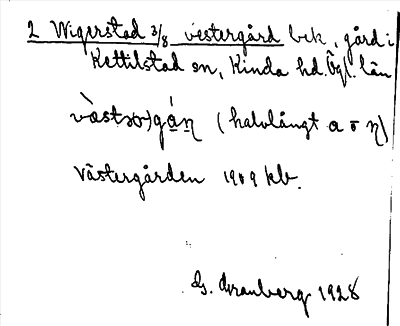 2 Wigerstad 3/8 vestergård bek, gård i
Kettilstad sn, Kinda hd. Ögl. län
(halvlångt a o ŋ)
Västergården 1909 kb.
G. Granberg 1928